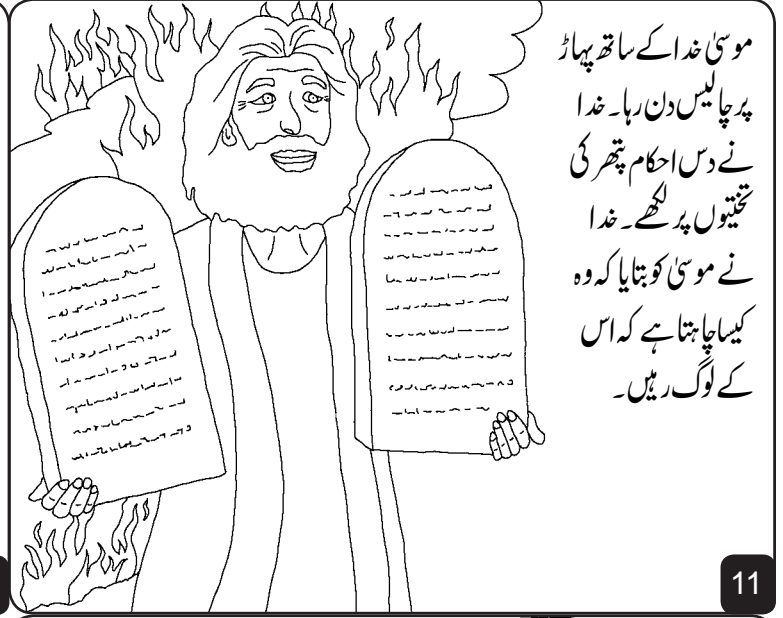 موسیٰ خدا کے ساتھ پہاڑ
پر چالیس دن رہا۔ خدا
نے دس احکام پتھر کی
تختیوں پر لکھے۔ خدا
نے موسیٰ کو بتایا کہ وہ
کیسا چاہتا ہے کہ اس
کے لوگ رہیں۔
11